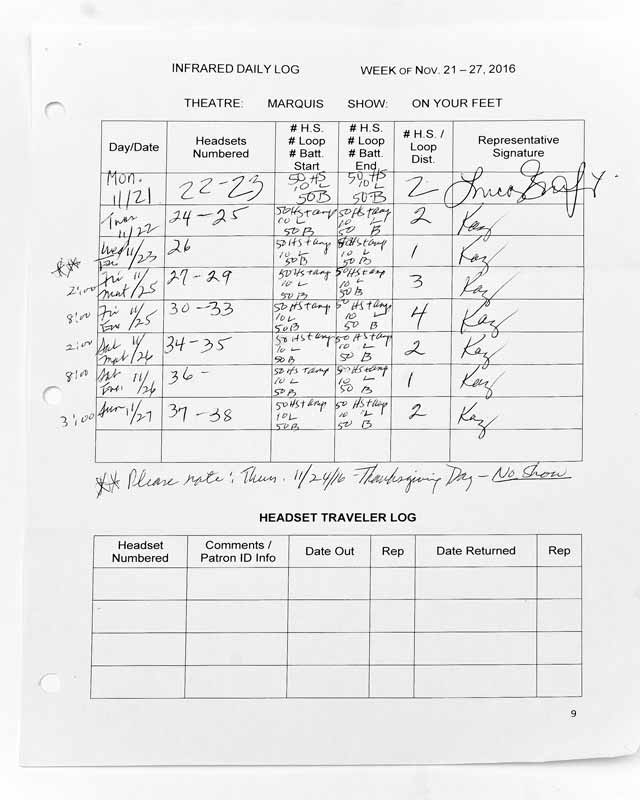 INFRARED DAILY LOG WEEK OF NOV. 21 – 27, 2016
THEATRE: MARQUIS SHOW: ON YOUR FEET
Day/Date Headsets Numbered # H.S. # Loop # Batt. Start # H.S. # Loop # Batt. End # H.S. / Loop Dist. Representative Signature
Mon. 11/21 22-23 50 HS 10 L 50 B 50 HS 10 L 50 B 2
Tues 11/22 24-25 50 HS + amp 10 L 50 B 50 HS + amp 10 L 50 B 2 Kaz
** Wed 11/23 26 50 HS + amp 10 L 50 B 50 HS + amp 10 L 50 B 1 Kaz
2:00 Fri mat 11/25 27-29 50 HS + amp 10 L 50 B 50 HS + amp 10 L 50 B 3 Kaz
8:00 Fri Eve 11/25 30-33 50 HS + amp 10 L 50 B 50 HS + amp 10 L 50 B 4 Kaz
2:00 Sat mat 11/26 34-35 50 HS + amp 10 L 50 B 50 HS + amp 10 L 50 B 2 Kaz
8:00 Sat Eve. 11/26 36- 50 HS + amp 10 L 50 B 50 HS + amp 10 L 50 B 1 Kaz
3:00 Sun 11/27 37-38 50 HS + amp 10 L 50 B 50 HS + amp 10 L 50 B 2 Kaz
** Please note: Thurs. 11/24/16 - Thanksgiving Day - No Show
HEADSET TRAVELER LOG
Headset Numbered Comments / Patron ID Info Date Out Rep Date Returned Rep
9